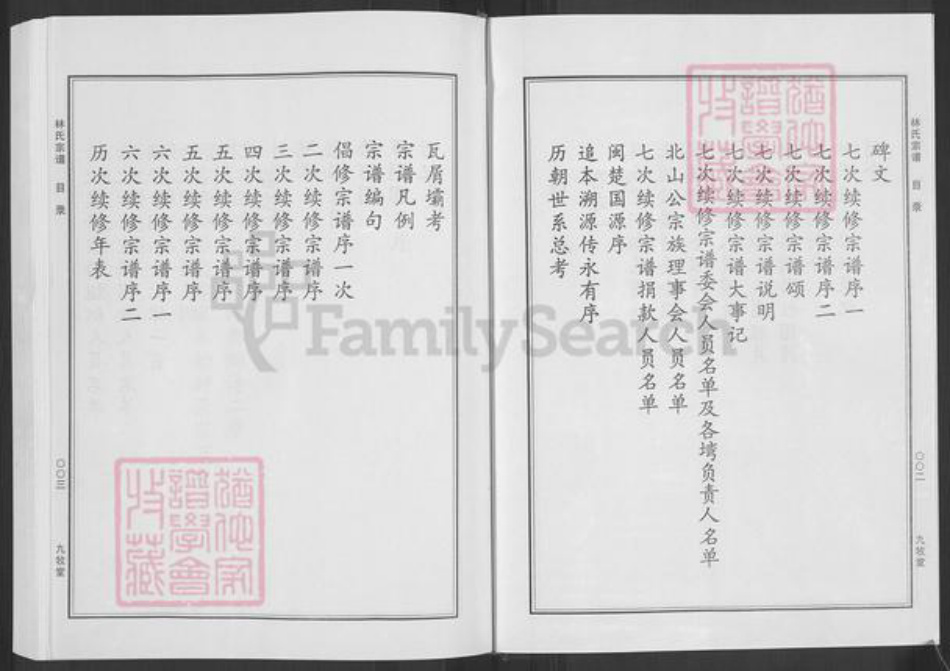 林氏宗谱 目录
碑文
七次续修宗谱序一
七次续修宗谱序二
七次续修宗谱颂
七次续修宗谱说明
七次续修宗谱大事记
七次续修宗谱委会人员名单及各塆负责人名单
北山公宗族理事会人员名单
七次续修宗谱捐款人员名单
闽楚国源序
追本溯源传永有序
历朝世系总考
〇〇二
九牧堂
瓦屑壩考
宗谱凡例
宗谱编句
倡修宗谱序一次
二次续修宗谱序
三次续修宗谱序
四次续修宗谱序
五次续修宗谱序
五次续修宗谱序
六次续修宗谱序一
六次续修宗谱序二
历次续修年表
林氏宗谱 目录
〇〇三
九牧堂
FamilySearch